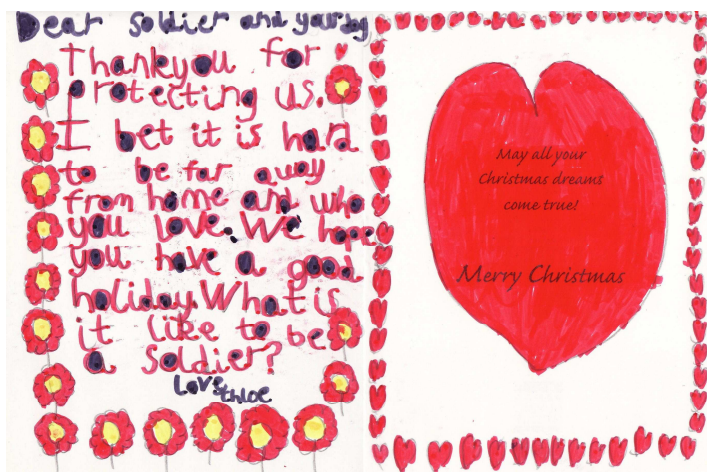 Dear soldier and your dog
Thankyou for
protecting us.
I bet it is hard
to be far away
from home and who
you love. We hope
you have a good
holiday. What is
it like to be
a soldier?
Love
Chloe
May all your
Christmas dreams
come true!
Merry Christmas